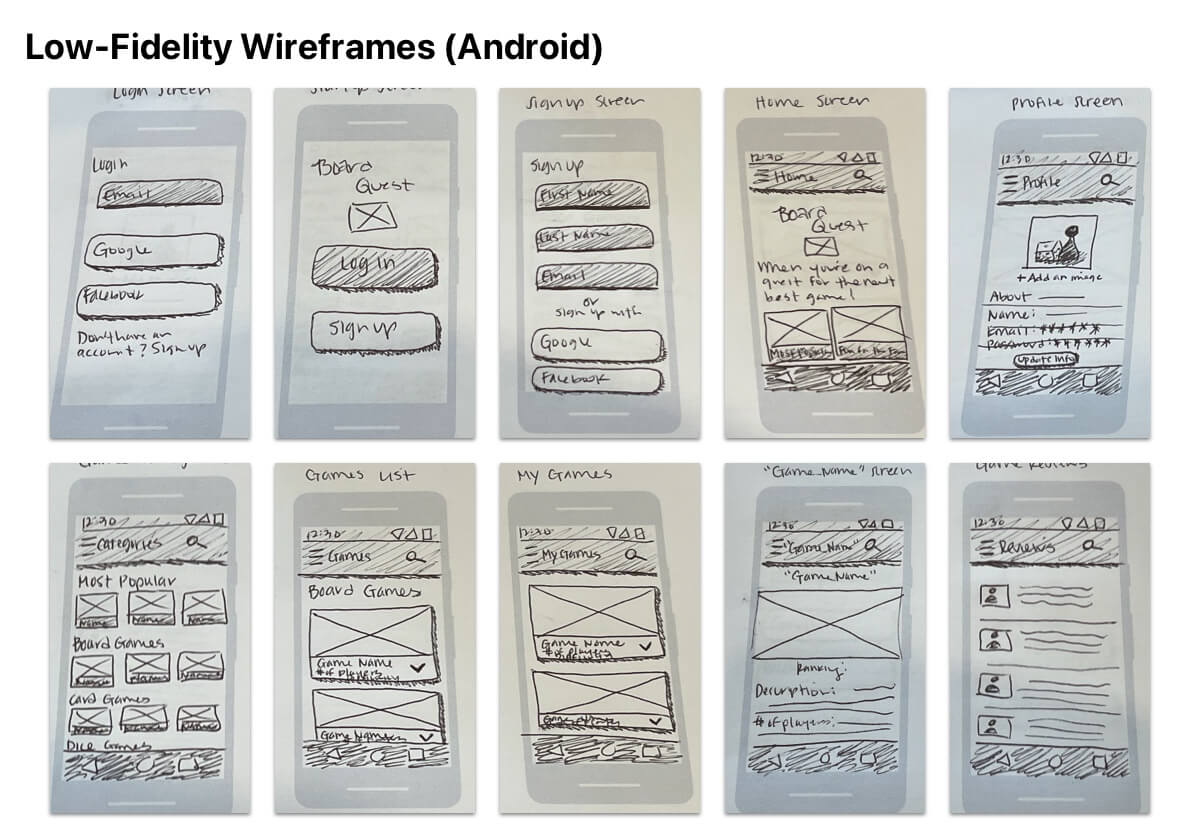 Low-Fidelity Wireframes (Android)
Login Screen
Login
Email
Google
Facebook
Don't have an
account? Sign up
Board
Quest
Log In
Sign up
Sign up Screen
Sign up
First Name
Last Name
Email
or
sign up with
Google
Facebook
Home Screen
12:30
Home
Board
Quest
When you're on a
quest for the next
best game!
Most Popular
Profile Screen
12:30
Profile
+ Add an image
About
Name:
Email: ******
Password: ******
Update Info
12:30
Categories
Most Popular
Name
Name
Name
Board Games
Card Games
Dice Games
Games List
12:30
Games
Board Games
Game Name
# of players
Game Name
My Games
12:30
My Games
Game Name
# of players
"Game_Name" Screen
12:30
"Game_Name"
"Game Name"
Ranking:
Description:
# of players:
Game Reviews
12:30
Reviews